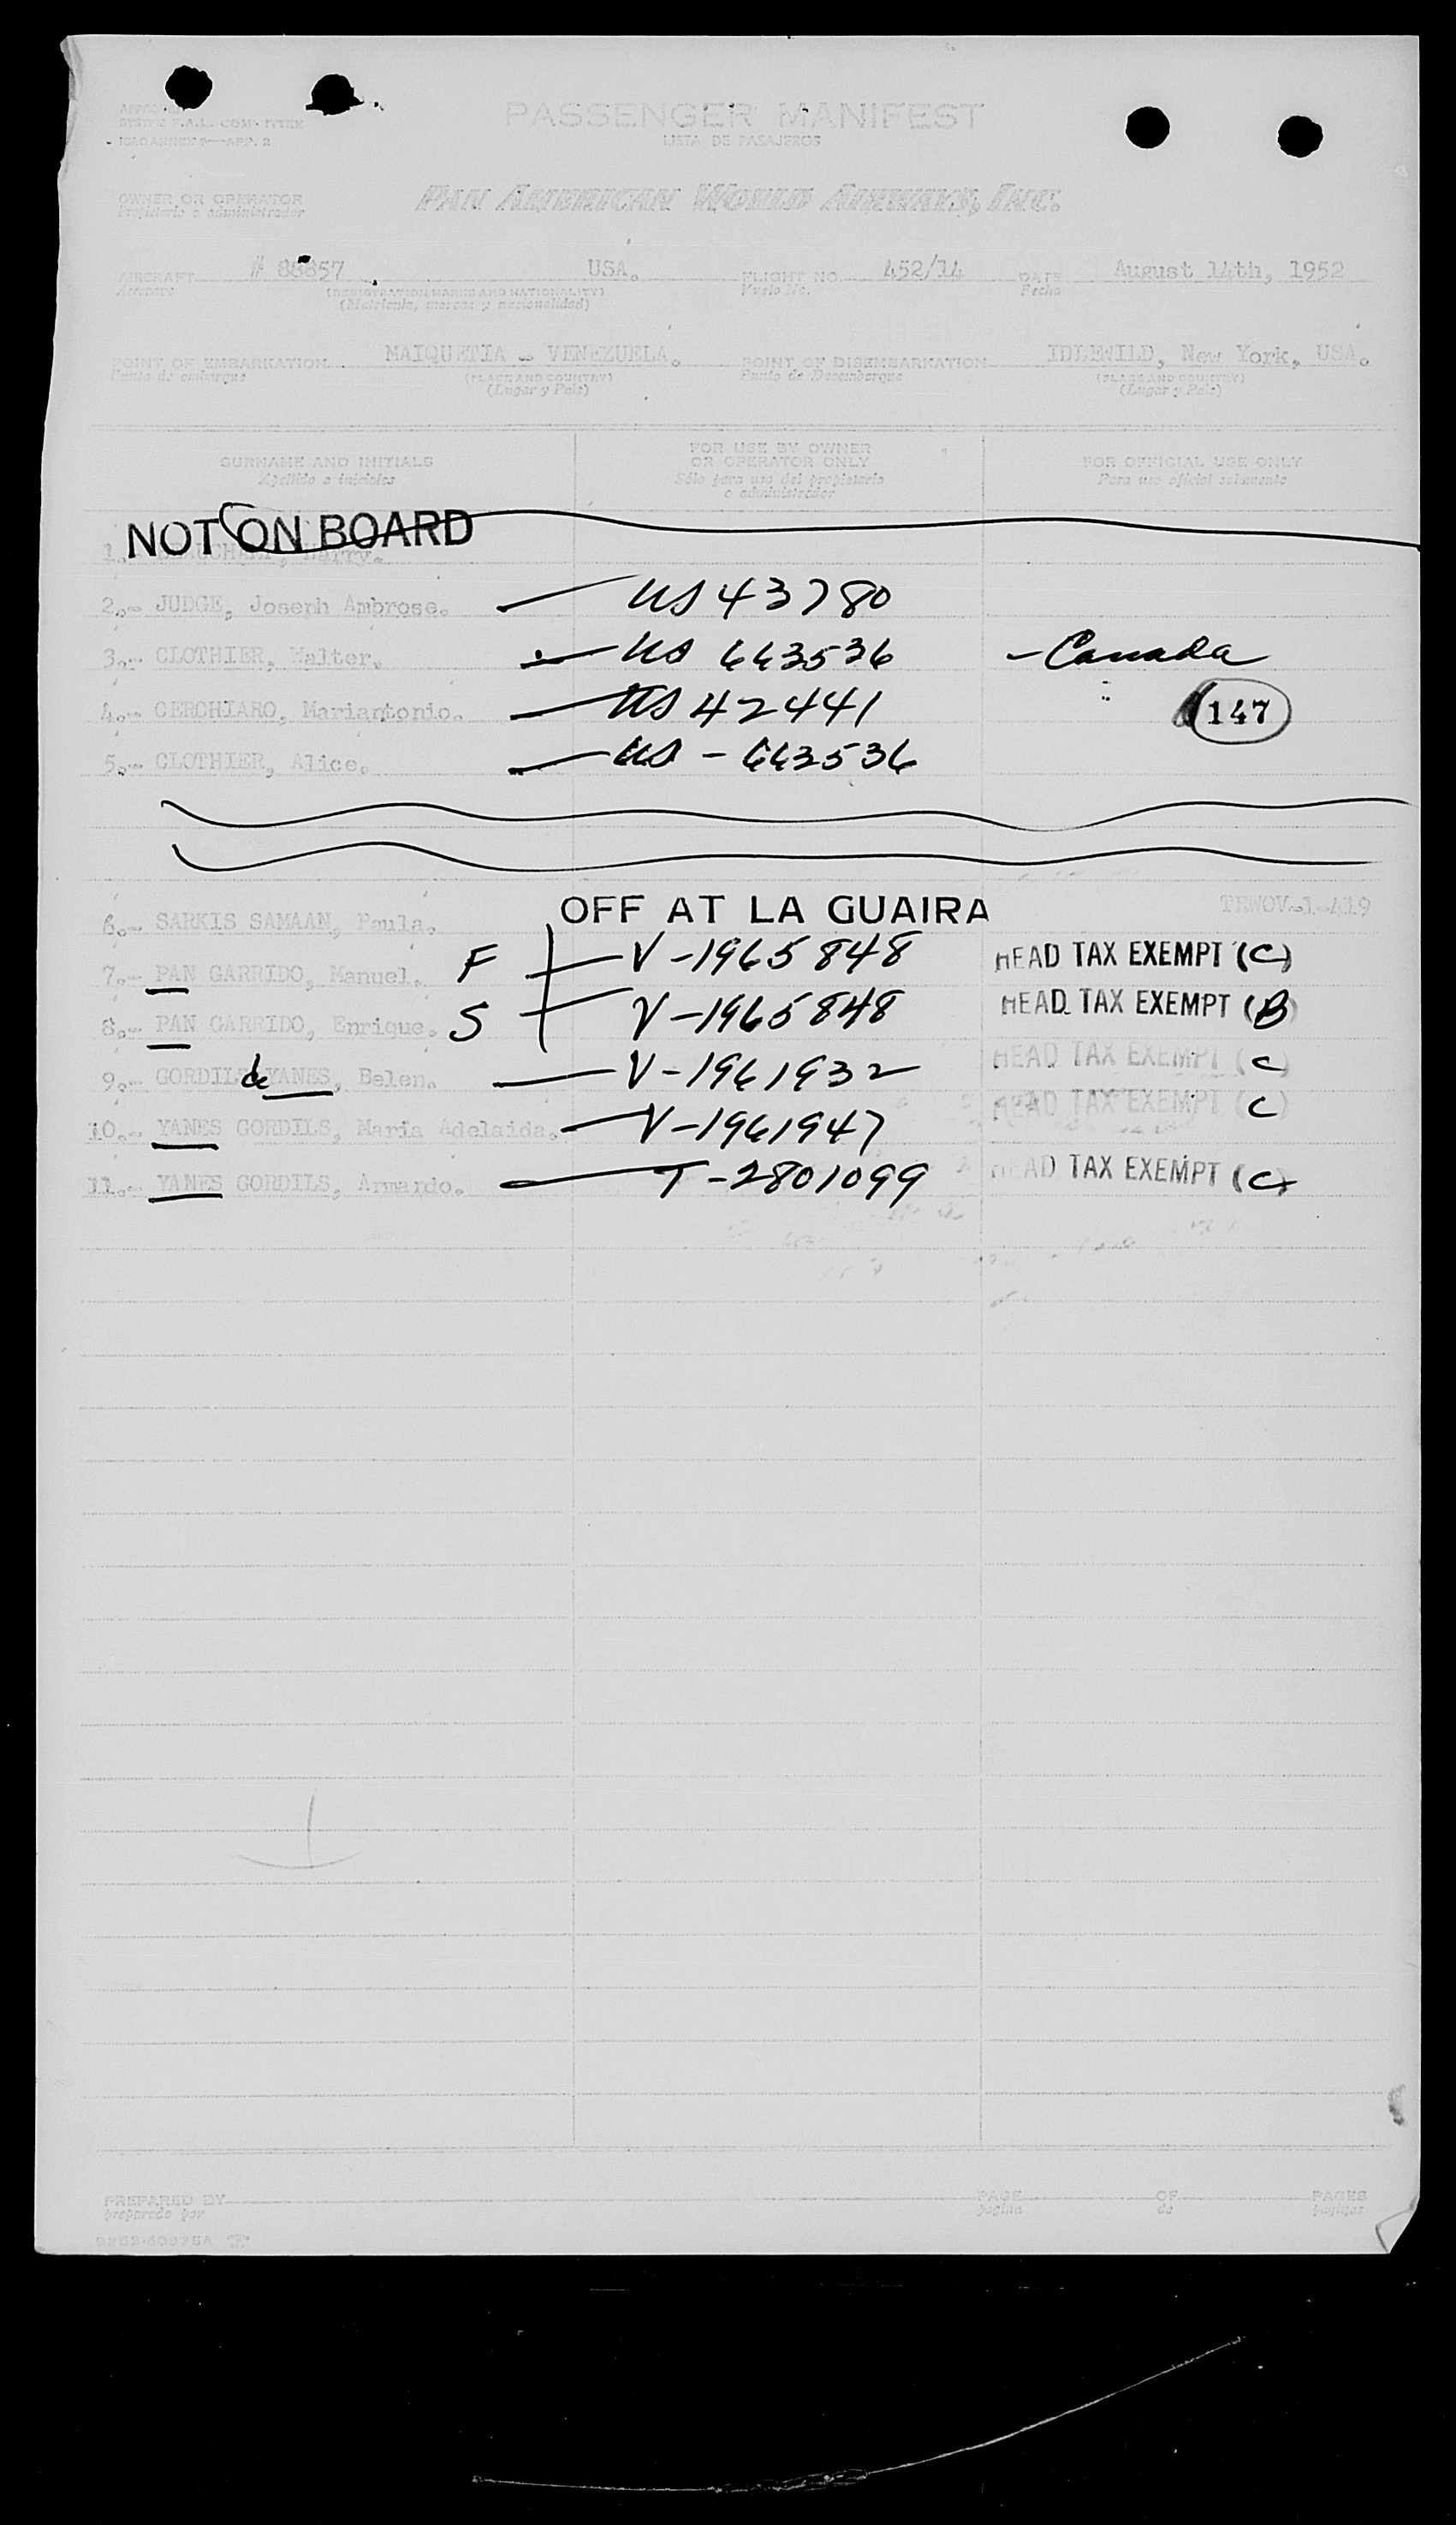 PASSENGER MANIFEST
LISTA DE PASAJEROS
ICAO ANNEX 9—APP. 2
OWNER OR OPERATOR
Propietario o administrador
PAN AMERICAN WORLD AIRWAYS, INC.
AIRCRAFT # 88857 USA. FLIGHT NO. 452/14 DATE August 14th, 1952
(REGISTRATION MARKS AND NATIONALITY) Vuelo No. Fecha
(Matrícula, marcas y nacionalidad)
POINT OF EMBARKATION MAIQUETIA - VENEZUELA. POINT OF DISEMBARKATION IDLEWILD, New York, USA.
Punto de embarque (PLACE AND COUNTRY) Punto de Desembarque (PLACE AND COUNTRY)
(Lugar y País) (Lugar y País)
SURNAME AND INITIALS FOR USE BY OWNER OR OPERATOR ONLY FOR OFFICIAL USE ONLY
Apellido e iniciales Sólo para uso del propietario o administrador Para uso oficial solamente
NOT ON BOARD
1.- Harry.
2.- JUDGE, Joseph Ambrose. US 43780
3.- CLOTHIER, Walter. US 663536 - Canada
4.- CERCHIARO, Mariantonio. US 42441 " 147
5.- CLOTHIER, Alice. US - 663536
OFF AT LA GUAIRA
6.- SARKIS SAMAAN, Paula. TENOV-1-419
7.- PAN GARRIDO, Manuel. F V-1965848 HEAD TAX EXEMPT (C)
8.- PAN GARRIDO, Enrique. S V-1965848 HEAD TAX EXEMPT (B)
9.- GORDILS de YANES, Belen. V-1961932 HEAD TAX EXEMPT (C)
10.- YANES GORDILS, Maria Adelaida. V-1961947 HEAD TAX EXEMPT (C)
11.- YANES GORDILS, Armando. T-2801099 HEAD TAX EXEMPT (C)
PREPARED BY PAGE OF PAGES
preparado por pagina de paginas